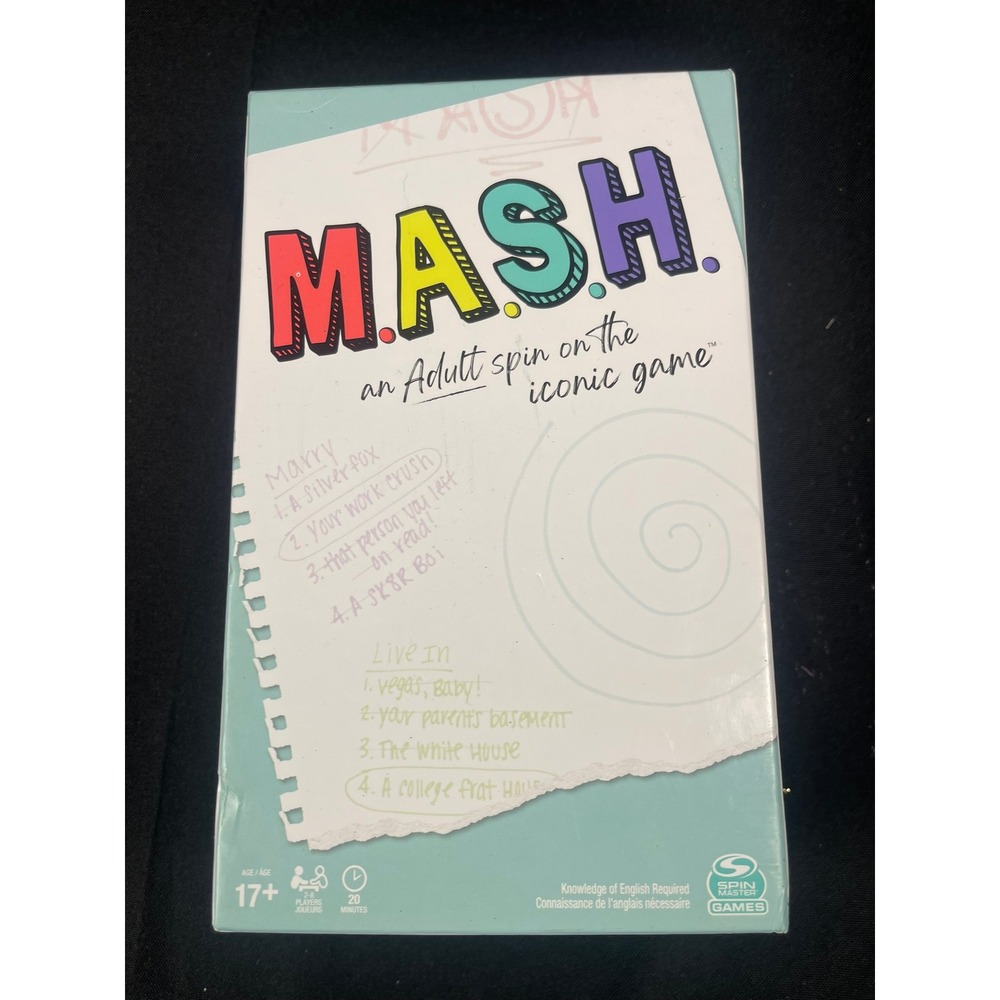 MASH
M.A.S.H.
an Adult spin on the
iconic game™
Marry
1. A silver fox
2. Your work crush
3. that person you left
on read!
4. A SK8R BOI
Live In
1. Vegas, Baby!
2. your parents basement
3. The White House
4. A college frat House
AGE / ÂGE
17+
PLAYERS
JOUEURS
20
MINUTES
Knowledge of English Required
Connaissance de l'anglais nécessaire
SPIN
MASTER
GAMES